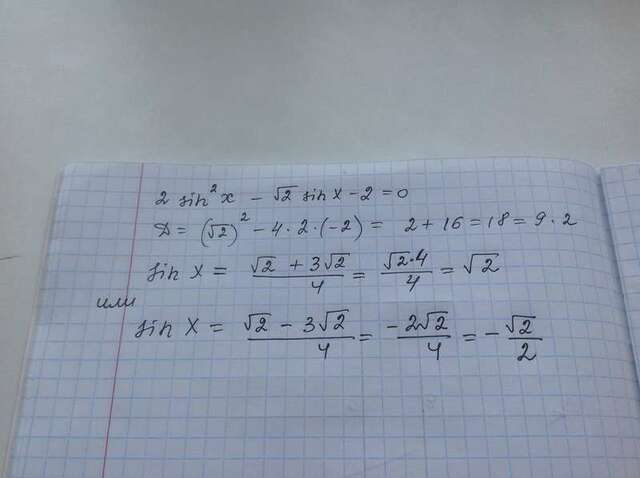 2 sin² x − √2 sin x − 2 = 0
D = (√2)² − 4 · 2 · (−2) = 2 + 16 = 18 = 9 · 2
sin x = (√2 + 3√2)/4 = (√2 · 4)/4 = √2
или
sin x = (√2 − 3√2)/4 = (−2√2)/4 = −√2/2